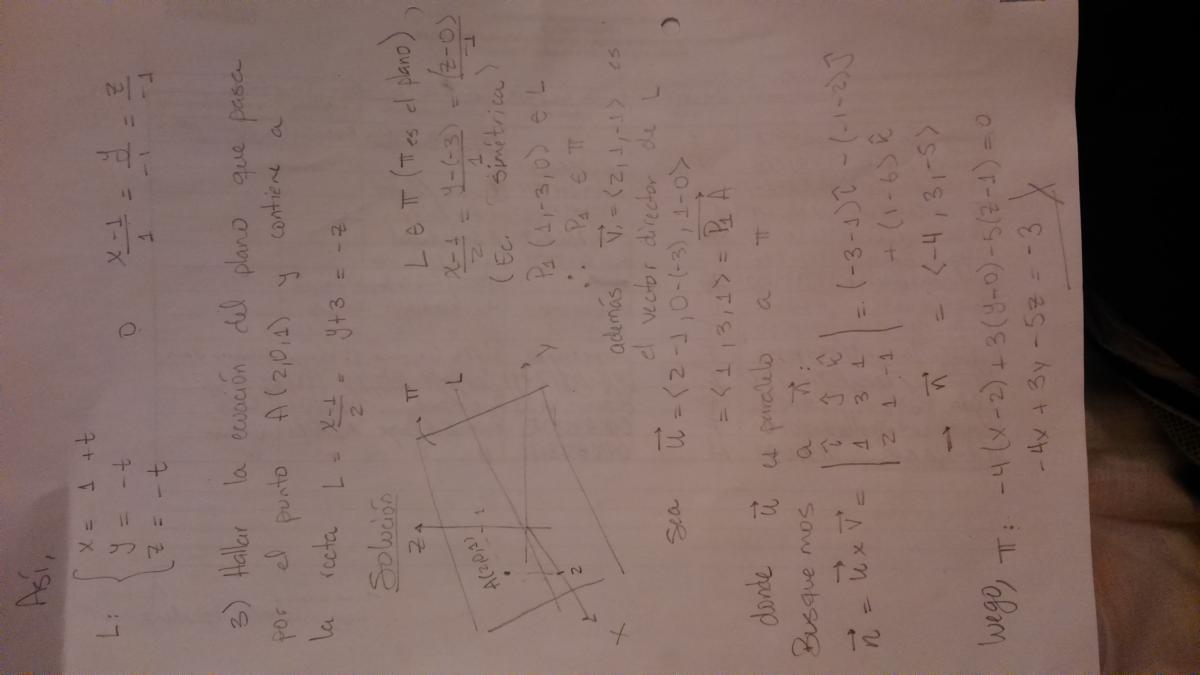 Así,
L: { x = 1 + t
y = -t
z = -t
o
x-1/1 = y/-1 = z/-1
3) Hallar la ecuación del plano que pasa
por el punto A(2,0,1) y contiene a
la recta L = x-1/2 = y+3 = -z
Solución
L ∈ π (π es el plano)
x-1/2 = y-(-3)/1 = (z-0)/-1
(Ec. simétrica)
P1(1,-3,0) ∈ L
∴ P1 ∈ π
además V1 = <2,1,-1> es
el vector director de L
Z
π
L
A(2,0,1)
1
2
Y
X
Sea u = <2-1, 0-(-3), 1-0>
= <1, 3, 1> = P1A
donde u es paralelo a π
Busquemos a n:
n = u x v = | i j k | = (-3-1)i - (-1-2)j
| 1 3 1 | + (1-6)k
| 2 1 -1 |
n = <-4, 3, -5>
luego, π: -4(x-2)+3(y-0)-5(z-1)=0
-4x + 3y - 5z = -3